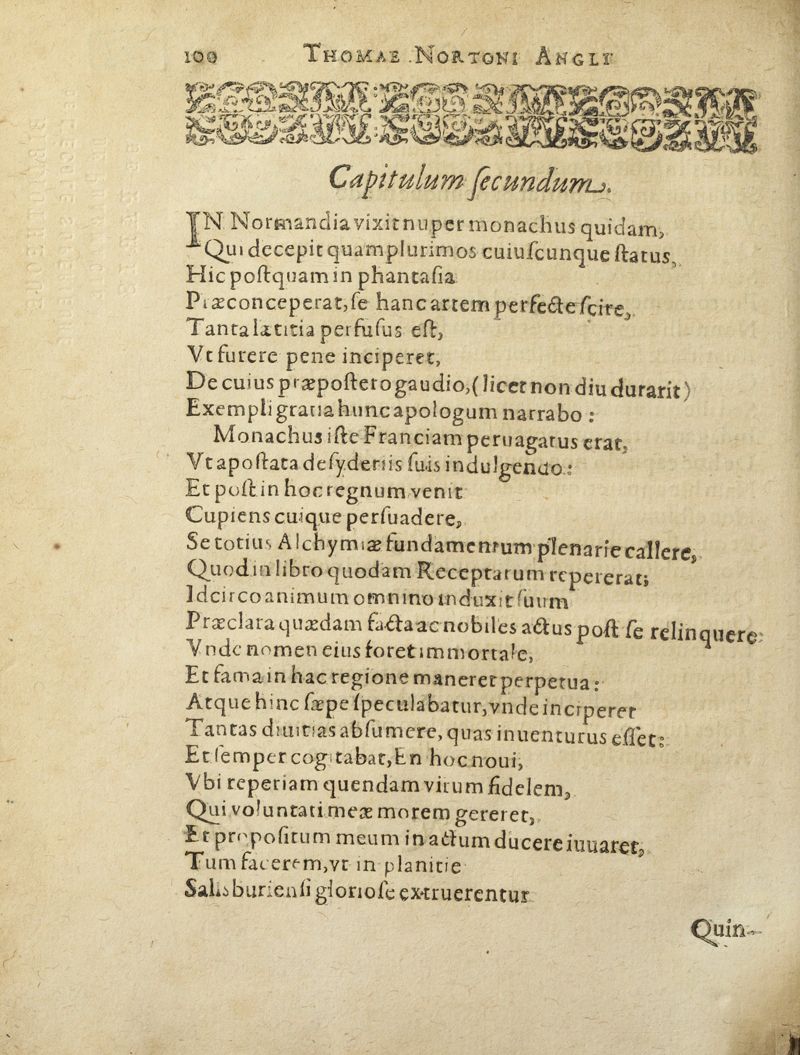 100 THOMAE NORTONI ANGLI
Capitulum ſecundum.
IN Normandia vixit nuper monachus quidam,
Qui decepit quamplurimos cuiuſcunque ſtatus,
Hic poſtquam in phantaſia
Præconceperat, ſe hanc artem perfecte ſcire,
Tanta lætitia perfuſus eſt,
Vt furere pene inciperet,
De cuius præpoſtero gaudio, (licet non diu durarit)
Exempli gratia hunc apologum narrabo :
Monachus iſte Franciam peruagatus erat,
Vt apoſtata deſyderiis ſuis indulgendo :
Et poſt in hoc regnum venit
Cupiens cuique perſuadere,
Se totius Alchymiæ fundamentum plenarie callere,
Quod in libro quodam Receptarum repererat;
Idcirco animum omnino induxit ſuum
Præclara quædam facta ac nobiles actus poſt ſe relinquere:
Vnde nomen eius foret immortale,
Et fama in hac regione maneret perpetua :
Atque hinc ſæpe ſpeculabatur, vnde inciperet
Tantas diuitias abſumere, quas inuenturus eſſet:
Et ſemper cogitabat, En hoc noui,
Vbi reperiam quendam virum fidelem,
Qui voluntati meæ morem gereret,
Et propoſitum meum in actum ducere iuuaret,
Tum facerem, vt in planitie
Salisburienſi glorioſe extruerentur
Quin-